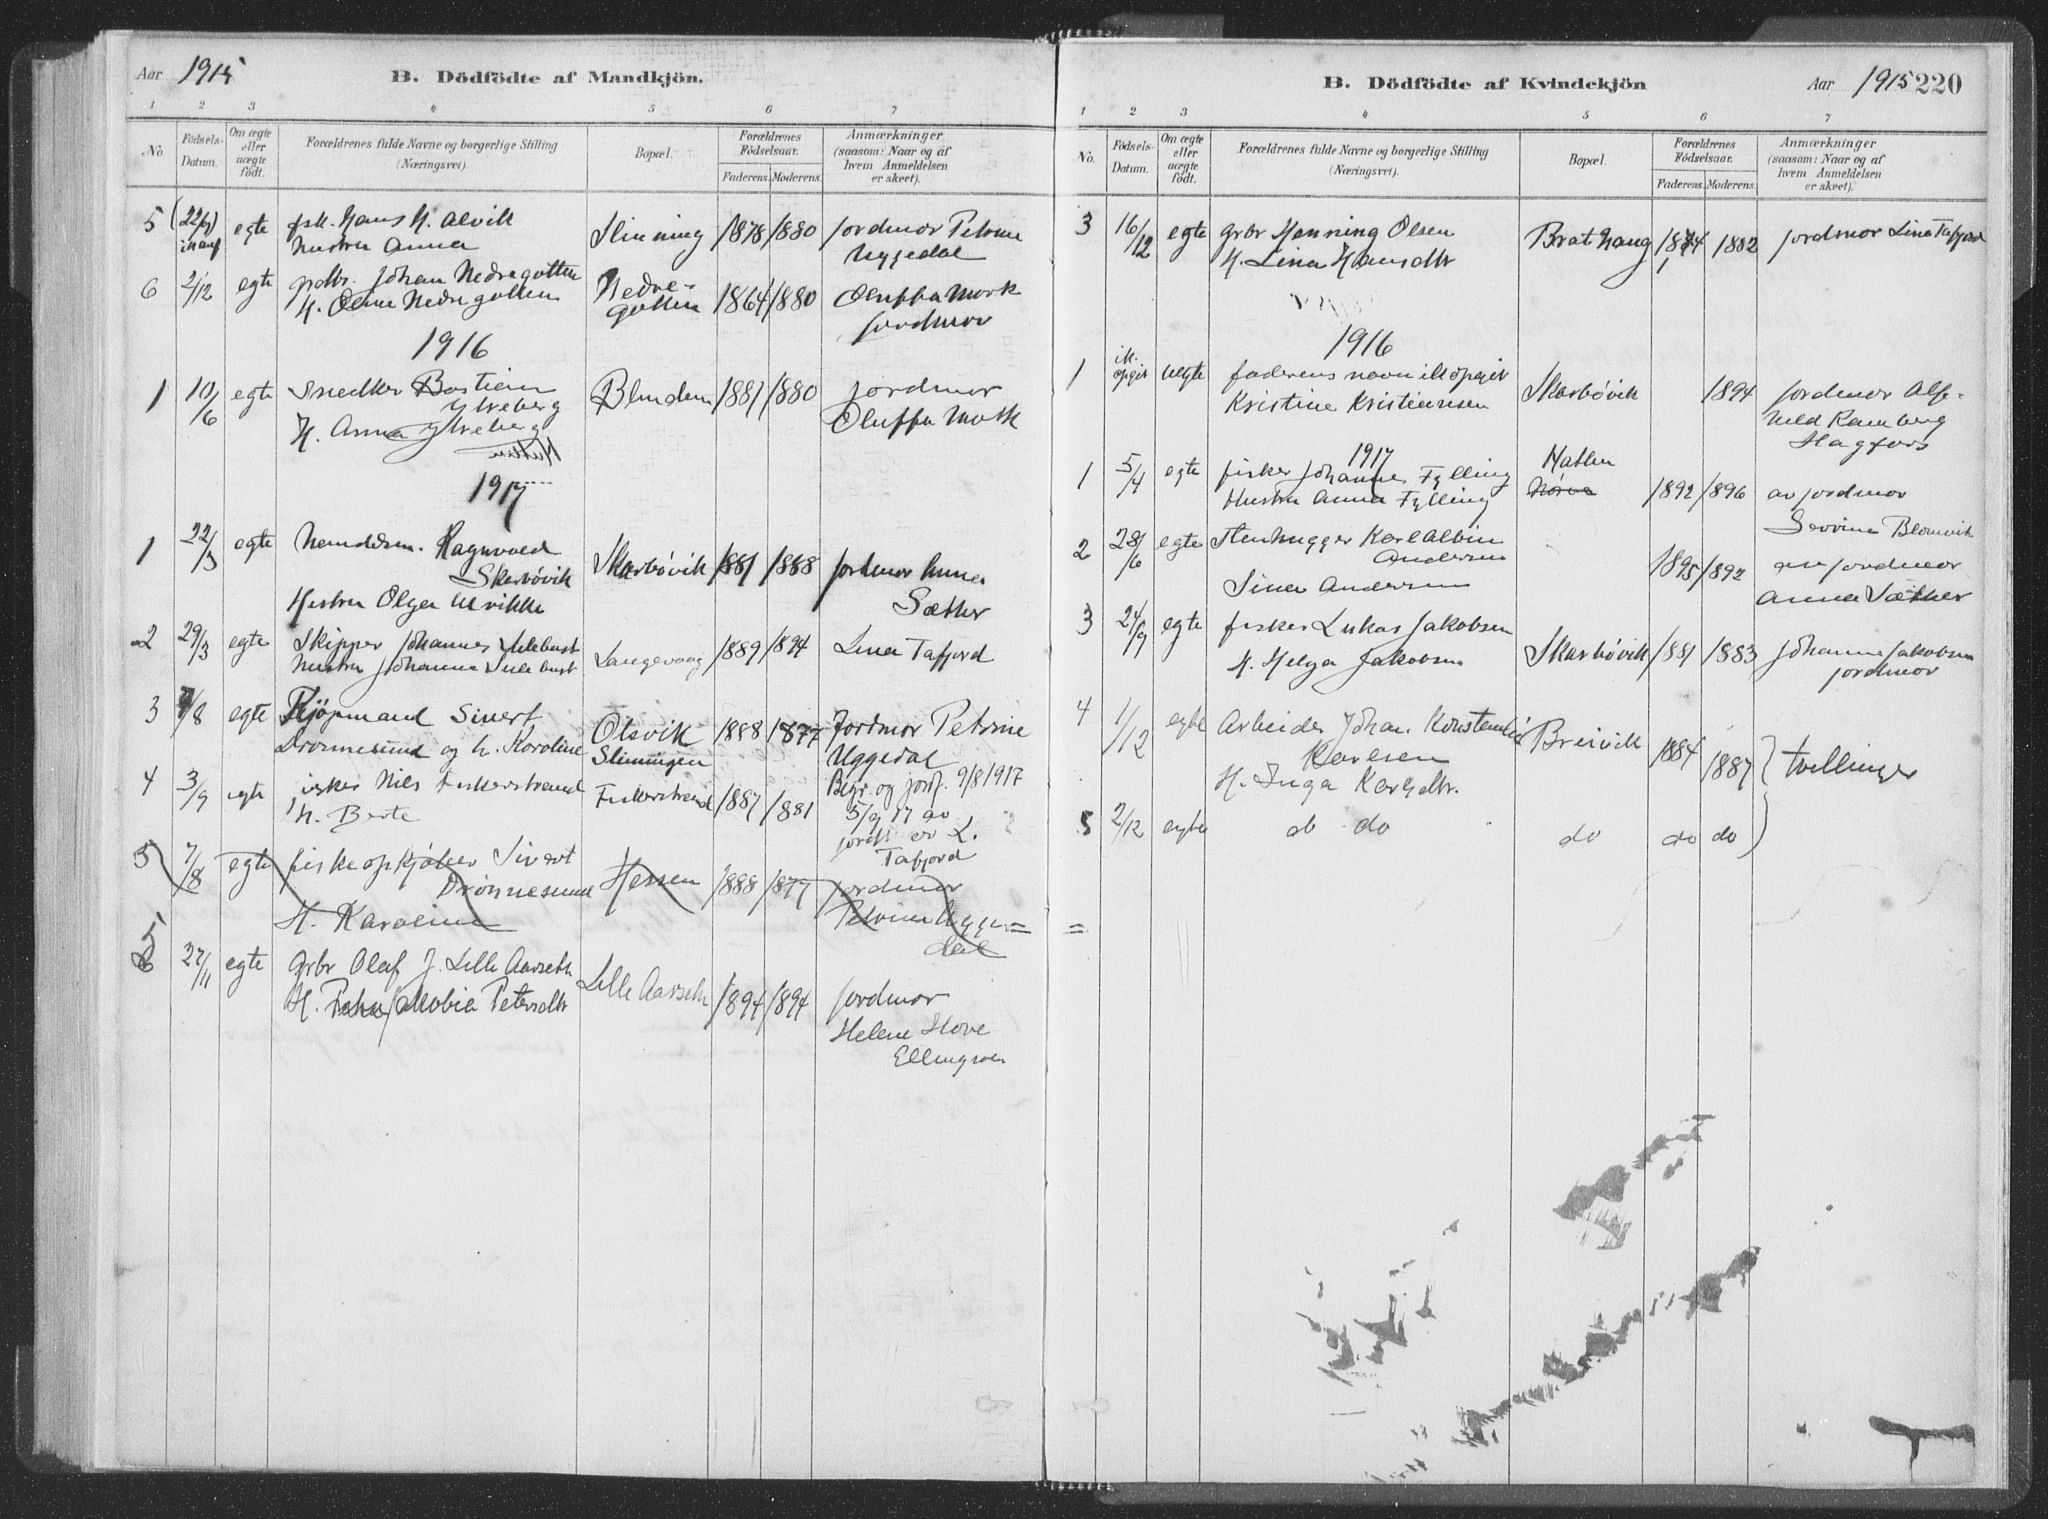 Aar 1915
B. Dödfödte af Mandkjön.
1 2 3 4 5 6 7
No.
Födsels-Datum.
Om ægte eller uægte födt.
Forældrenes fulde Navne og borgerlige Stilling
(Næringsvei).
Bopæl.
Forældrenes Födselsaar.
Faderens. Moderens.
Anmærkninger
(saasom: Naar og af
hvem Anmeldelsen
er skeet).
5 (22/9) egte fsk. Hans H. Alvik Slinning 1878 1880 jordmor Petrine
hustru Anna Uggedal
6 2/12 egte Johan Nedregotten Nedre-
gotten 1864 1880 Oluffa Mork
H. Oline Nedregotten jordmor
1916
1 10/6 egte Snedker Bastian Blindem 1881 1880 jordmor
Ytreberg
H. Anna Ytreberg Oluffa Mork
1917
1 22/3 egte Handelsm. Ragnvald Skarbövik 1881 1888 jordmor Anna
Skarbövik Sæther
Hustru Olga Ulvikke
2 29/3 egte Skipper Johannes Sulebust Langevaag 1889 1894 Lina Tafjord
hustru Johanna Sulebust
3 7/8 egte Kjöpmand Sivert Olsvik 1888 1877 Jordmor Petrine
Drönnesund og h. Karoline Slinningen Uggedal
Begr. og jordf. 9/8 1917
4 3/9 egte fisker Nils Fiskerstrand Fiskerstrand 1887 1881 5/9 17 av
h. Berte L.
Tafjord
5 7/8 egte fiskeopkjöber Sivert Hessen 1888 1877 jordmor
Drönnesund Petrine Ugge=
H. Karoline dal
5 27/11 egte grbr Olaf J. Lille Aarseth Lille Aarseth 1894 1894 jordmor
H. Jakobia Petersdtr Helene Hove
Ellingsen
B. Dödfödte af Kvindekjön
Aar 1915 220
1 2 3 4 5 6 7
No.
Födsels-Datum.
Om ægte eller uægte födt.
Forældrenes fulde Navne og borgerlige Stilling
(Næringsvei).
Bopæl.
Forældrenes Födselsaar.
Faderens. Moderens.
Anmærkninger
(saasom: Naar og af
hvem Anmeldelsen
er skeet).
3 16/12 egte grbr Henning Olsen Brathaug 1874 1882 jordmor Lina Tafjord
H. Lina Hansdtr
1916
1 ik. opgit uegte faderens navn ik opgit Skarbövik 1894 jordmor Alf-
Kristine Kristiansen hild Ramberg
Hagfors
1917
1 5/4 egte fisker Johannes Fylling Hatlen
Nörve 1892 1896 av jordmor
Hustru Anna Fylling Severine Blomvik
2 28/6 egte Stenhugger Karl Albin 1895 1892 av jordmor
Andersen Anna Sæther
Sina Andersen
3 24/9 egte fisker Lukas Jakobsen Skarbövik 1881 1883 Johanne Jakobsen
H. Helga Jakobsen jordmor
4 1/12 egte Arbeider Johan Breivik 1884 1887 } tvillinger
Karlsen
H. Inga
5 2/12 egte do do do do do
=